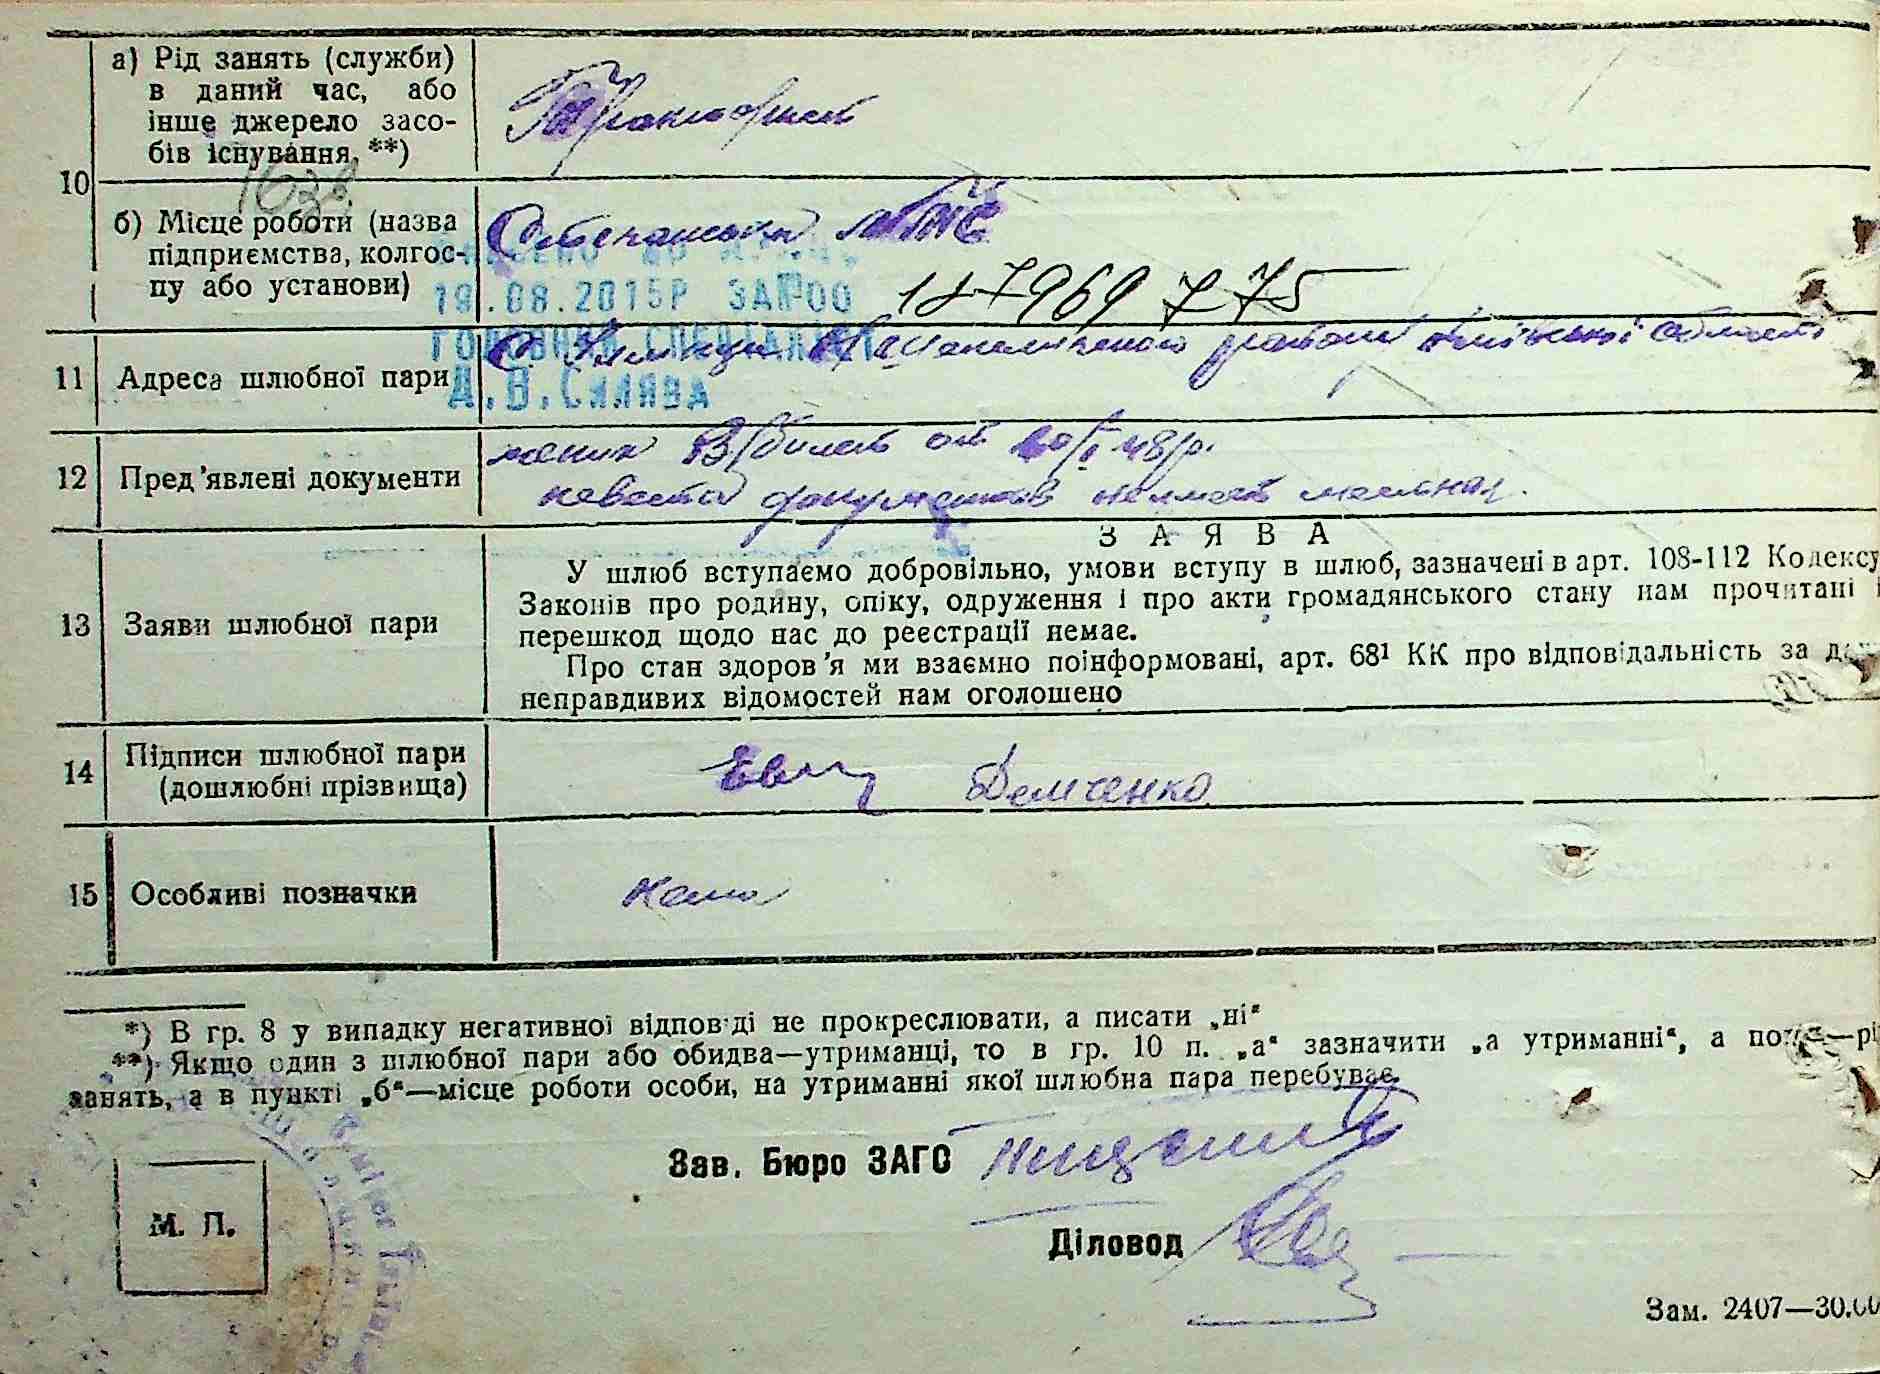 10
а) Рід занять (служби)
в даний час, або
інше джерело засо-
бів існування. **)
Тракторист
163
б) Місце роботи (назва
підприємства, колгос-
пу або установи)
МТС
19.08.2015Р ЗАГ
187969775
ГОЛОВНИЙ СПЕЦІАЛІСТ
Д.В.Силява
11 Адреса шлюбної пари
с. району області
12 Пред'явлені документи
жених В/билет от 20/I 48 р.
невеста документов не имеет местная.
13 Заяви шлюбної пари
ЗАЯВА
У шлюб вступаємо добровільно, умови вступу в шлюб, зазначені в арт. 108-112 Кодексу
Законів про родину, опіку, одруження і про акти громадянського стану нам прочитані і
перешкод щодо нас до реєстрації немає.
Про стан здоров'я ми взаємно поінформовані, арт. 68¹ КК про відповідальність за
неправдивих відомостей нам оголошено
14 Підписи шлюбної пари
(дошлюбні прізвища)
Демченко
15 Особливі позначки
нема
*) В гр. 8 у випадку негативної відповіді не прокреслювати, а писати „ні“
**) Якщо один з шлюбної пари або обидва—утриманці, то в гр. 10 п. „а“ зазначити „а утриманні“, а
занять, а в пункті „б“—місце роботи особи, на утриманні якої шлюбна пара перебуває
Зав. Бюро ЗАГС
М. П.
Діловод
Зам. 2407—30.00